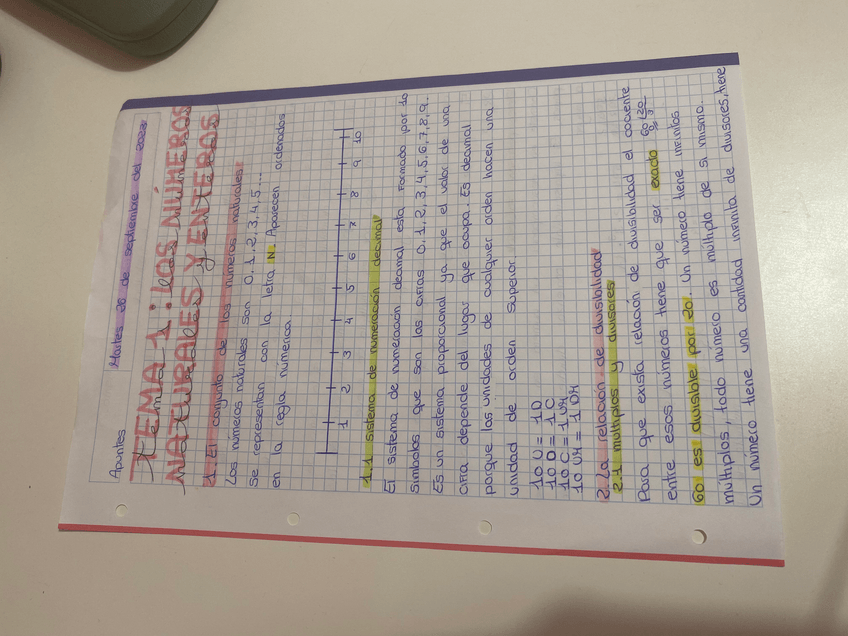 Apuntes Martes 26 de septiembre del 2023
TEMA 1: LOS NÚMEROS
NATURALES Y ENTEROS
1. El conjunto de los números naturales:
Los números naturales son 0,1,2,3,4,5...
Se representan con la letra N. Aparecen ordenados
en la regla númerica.
1 2 3 4 5 6 7 8 9 10
1.1 sistema de numeración decimal
El sistema de numeración decimal esta formado por 10
símbolos que son las cifras 0,1,2,3,4,5,6,7,8,9.
Es un sistema proporcional ya que el valor de una
cifra depende del lugar que ocupa. Es decimal
porque las unidades de cualquier orden hacen una
unidad de orden superior
10 U = 1D
10 D = 1C
10 C = 1UM
10 UM = 1DM
2. La relación de divisibilidad
2.1 múltiplos y divisores
Para que exista relación de divisibilidad el cociente
entre esos números tiene que ser exacto 60 20
0 3
60 es divisible por 20. Un número tiene infinitos
múltiplos, todo número es múltiplo de si mismo.
Un número tiene una cantidad infinita de divisores, tiene